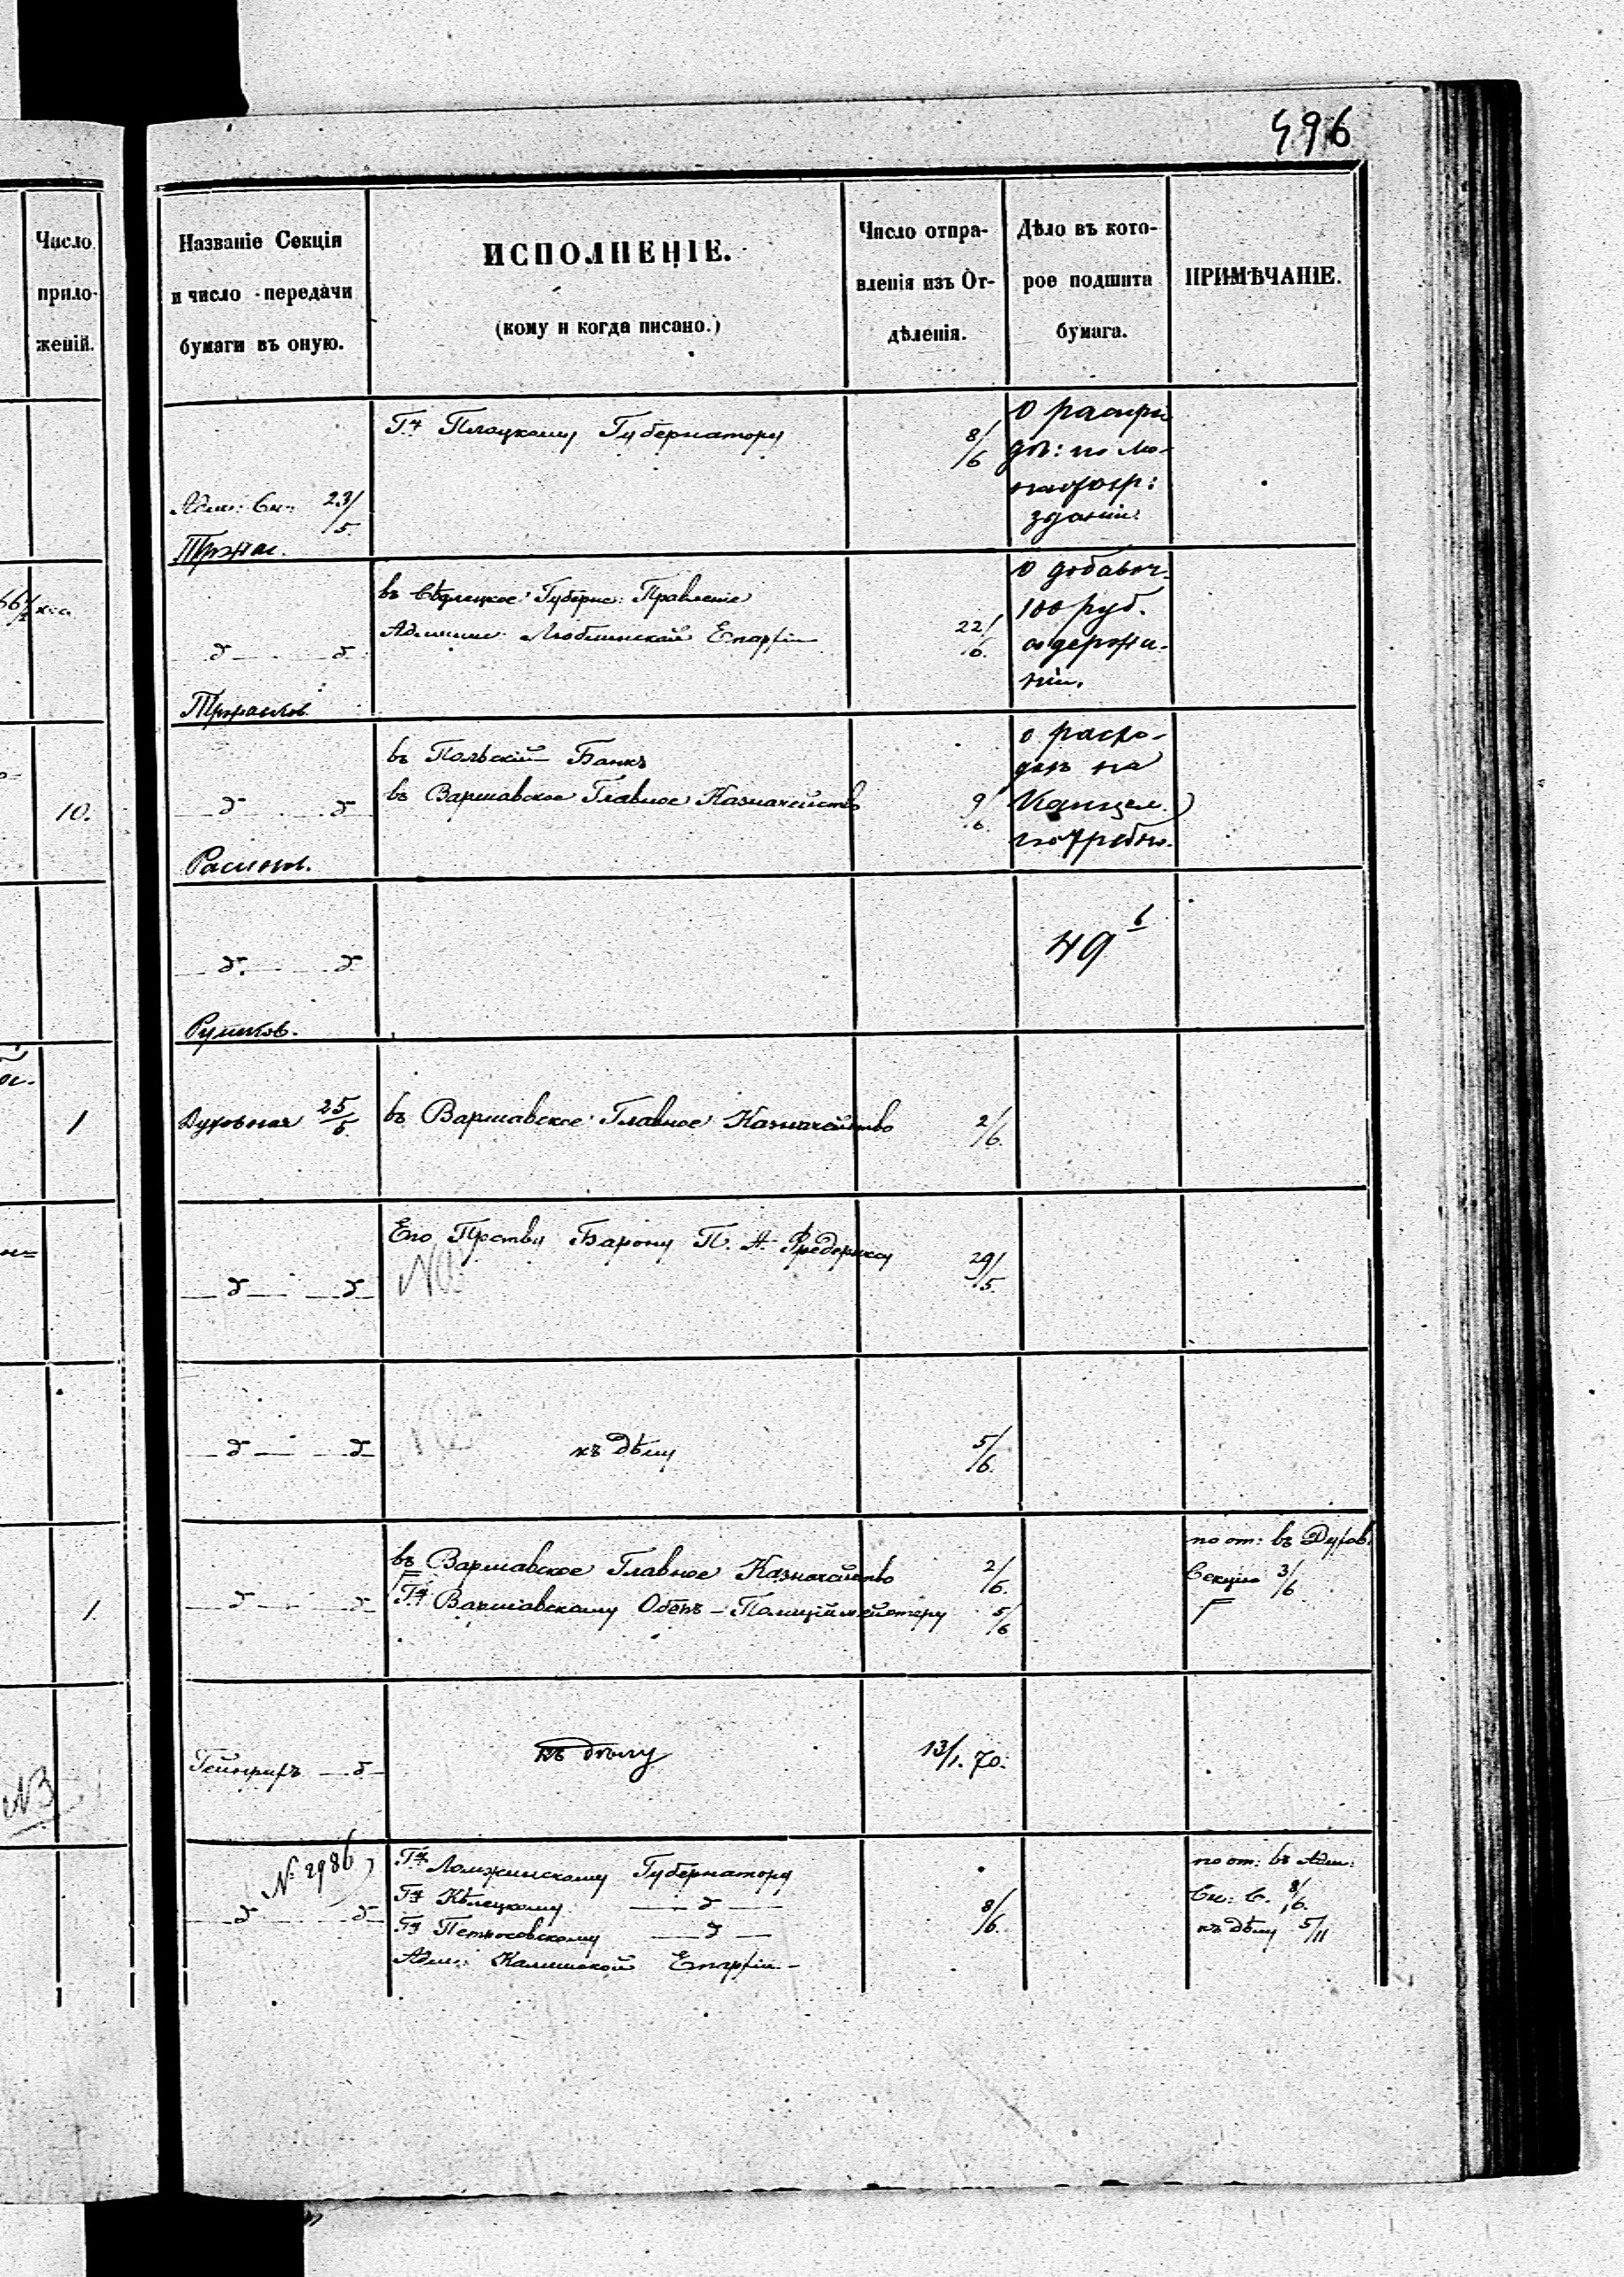 496
Число
прило-
женій.
Названіе Секціи
и число передачи
бумаги въ оную.
ИСПОЛНЕНІЕ.
(кому и когда писано.)
Число отпра-
вленія изъ От-
дѣленія.
Дѣло въ кото-
рое подшита
бумага.
ПРИМѢЧАНІЕ.
Г-ну Плоцкому Губернатору
8/6
зданій.
23/5
въ Сѣдлецкое Губерн: Правленіе
Админис: Люблинской Епархіи
22/6.
О добавоч.
100 руб.
содержа-
ніи.
10.
въ Польскій Банкъ
въ Варшавское Главное Казначейство
9/6.
о расхо-
дахъ на
Канцел.
потребно.
49 6
1
Духовная 25/5.
въ Варшавское Главное Казначейство
2/6.
Его Прству Барону П. А. Фредериксу
29/5.
къ дѣлу
5/6.
1.
въ Варшавское Главное Казначейство
Г-ну Варшавскому Оберъ-Полиціймейстеру
2/6.
5/6
по от: въ Духов.
Секцію 3/6
NB
къ дѣлу
13/1. 70.
№ 2986
Г-ну Ломжинскому Губернатору
Г-ну Кѣлецкому — д —
Г-ну Петроковскому — д —
Адм: Калишской Епархіи —
8/6.
по от: въ Адм:
8/6.
къ дѣлу 5/11